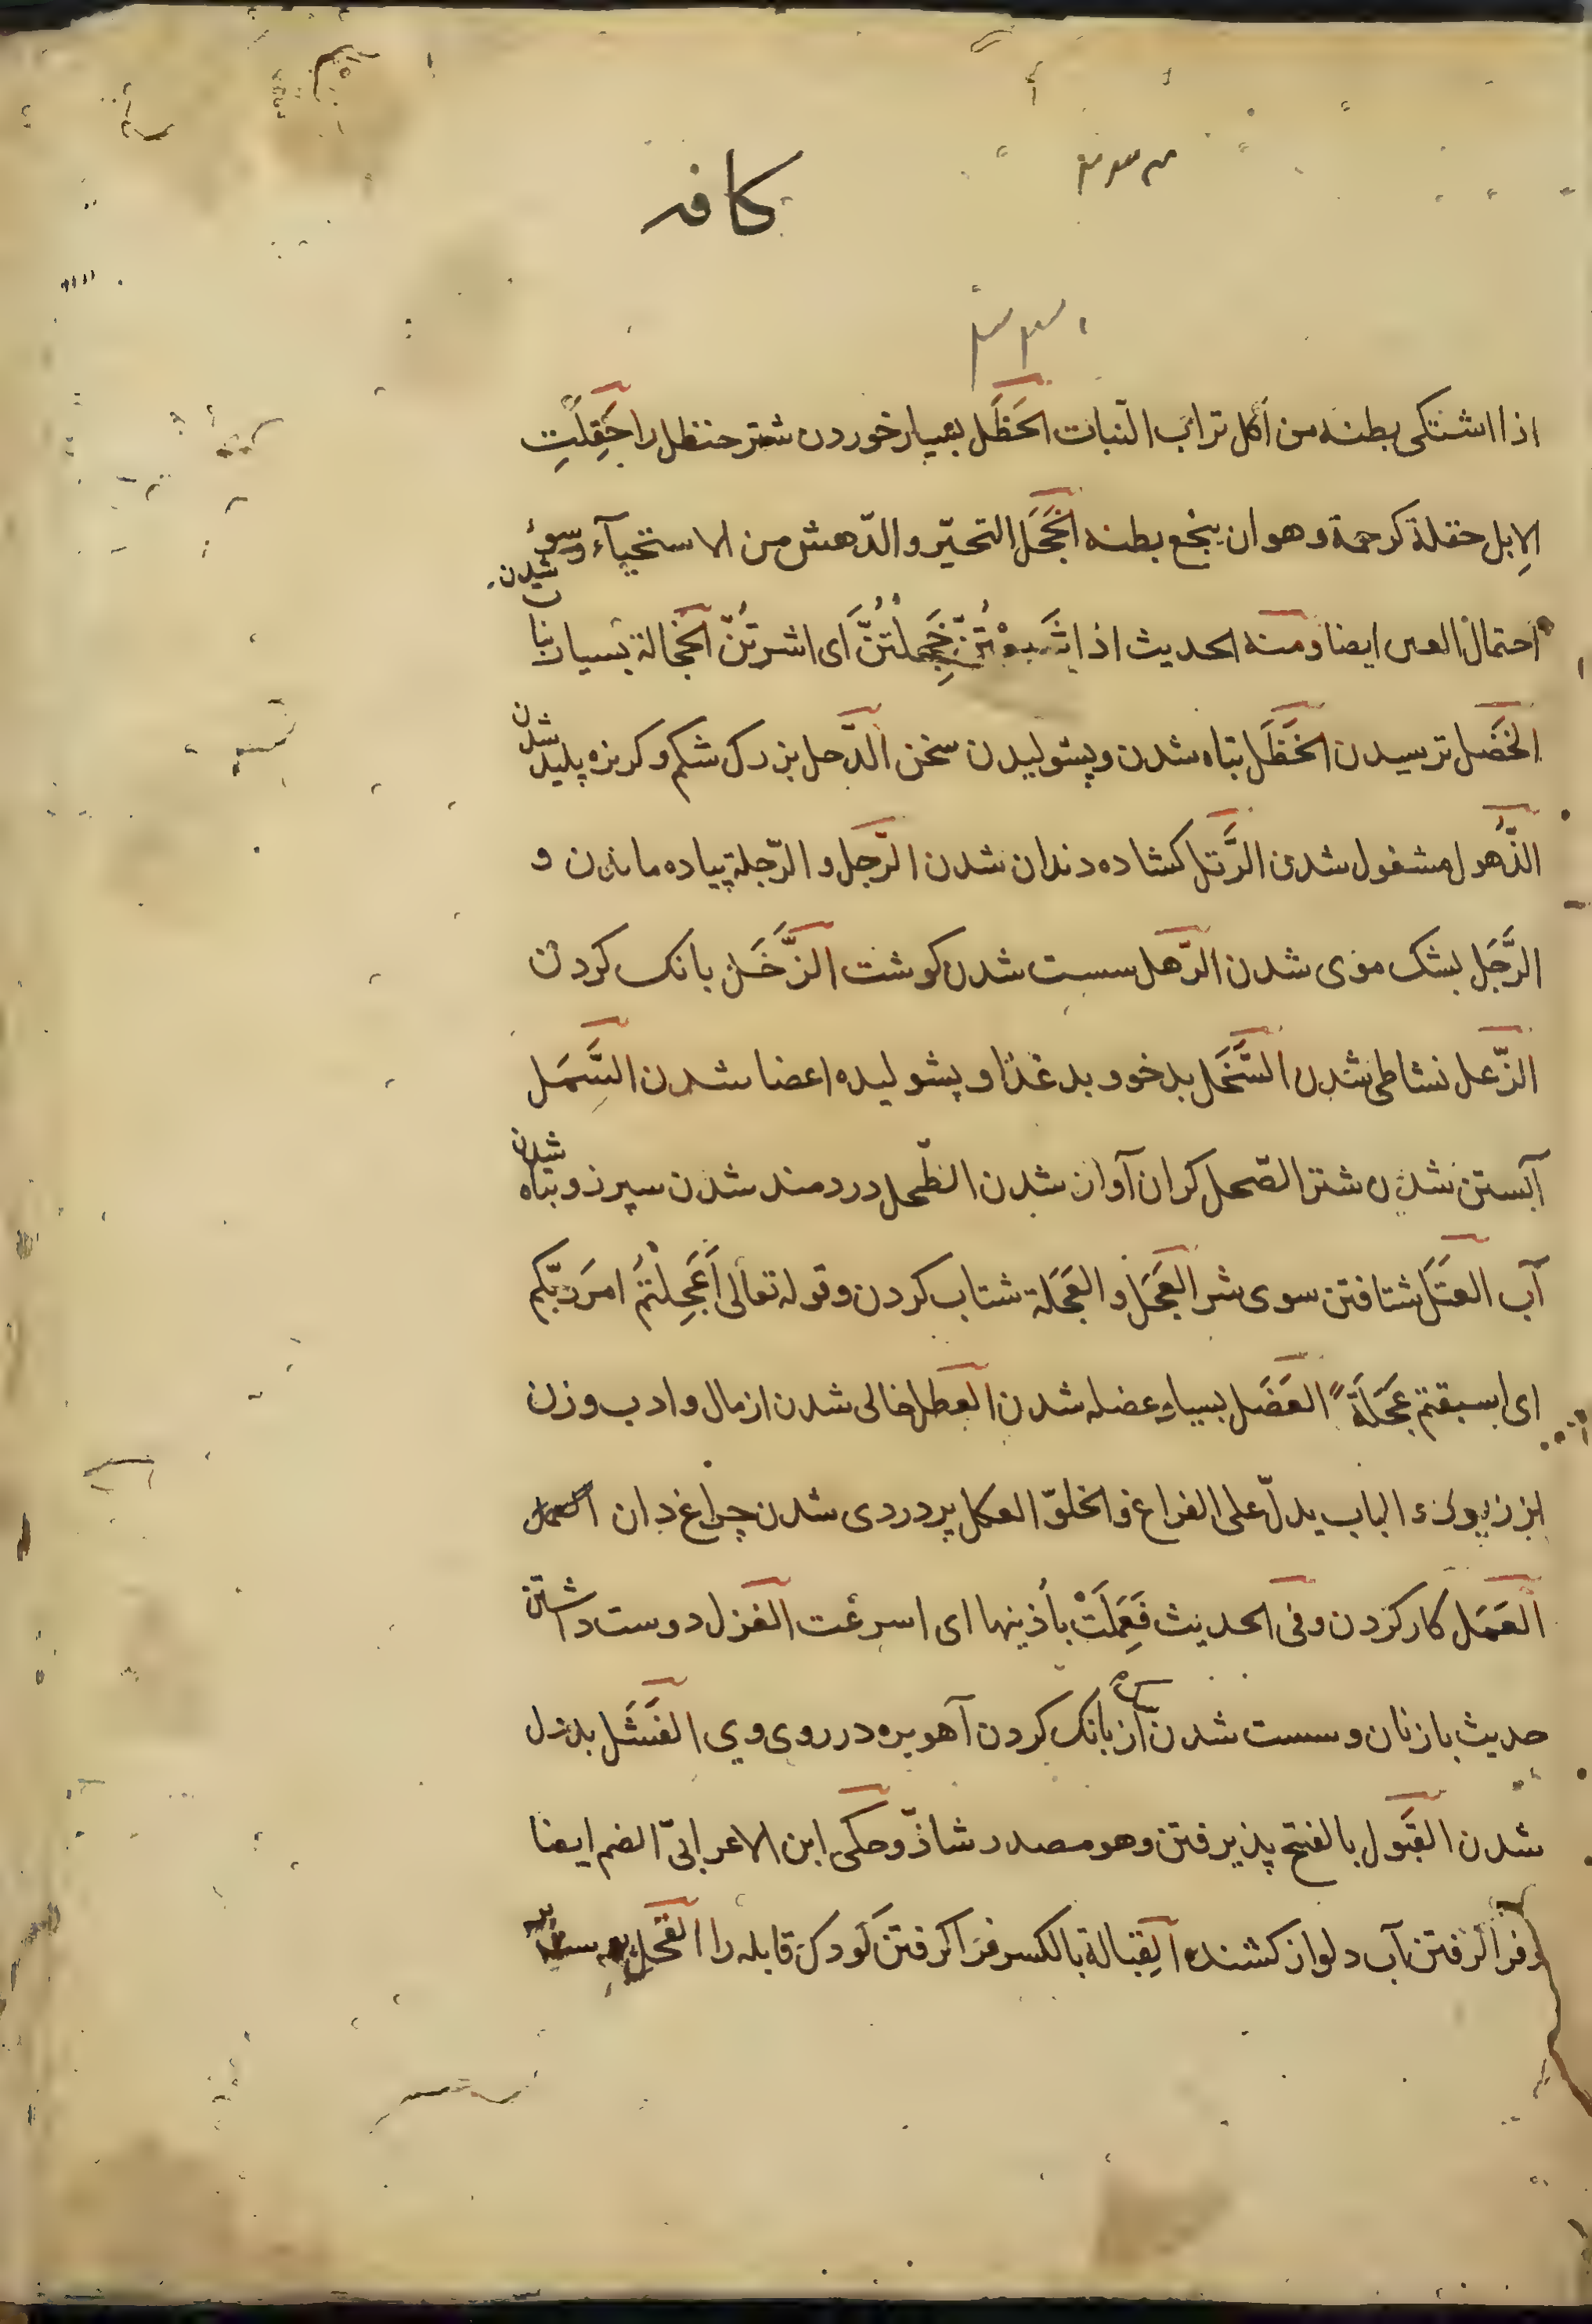 کافه
اذا اشتکی بطنه من اکل تراب النبات الحَظَل بسیار خوردن شتر حنظل را حَقِلَتِ
الاِبل حقلة کرحمة وهو ان یبخع بطنه الخَجَل التحیّر والدّهش من الاستحیآء وسوءُ
احتمال الغنی ایضا ومنه الحدیث اذا شَبِعْتُنَّ خَجِلْتُنَّ ای اشرتُنّ الخجالة بسیار نبات شدن
الخَضَل ترسیدن الخَطَل تباه شدن و پشولیدن سخن الدَّحل بزرک شکم و کربزه پلید شدن
الذُّهول مشغول شدن الرَّتل کشاده دندان شدن الرَّجل و الرّجلة پیاده ماندن و
الرَّجَل بشک موی شدن الرّهل سست شدن کوشت الزَّخَل بانک کردن
الزّعل نشاطی شدن السَّخَل بدخو و بد غذا و پشولیده اعضا شدن الشَّمَل
آبستن شدن شتر الصّحل کران آواز شدن الطّحل دردمند شدن سپرز و تباه شدن
آب العَتَل شتافتن سوی شر العَجَل و العَجَلة شتاب کردن و قوله تعالی أَعَجِلْتُمْ امرَ ربّکم
ای اسبقتم عَجَلَةً العَضَل بسیار عضله شدن العَطل خالی شدن از مال و ادب و زن
از زیور الباب یدلّ علی الفراغ والخلوّ العکل پر دردی شدن چراغ دان
العَمَل کار کردن وفی الحدیث فَعَمِلَتْ بأذنیها ای اسرعت الغزل دوست داشتن
حدیث با زنان و سست شدن سک از بانک کردن آهو بره در روی وی الفَشَل بددل
شدن القَبول بالفتح پذیرفتن وهو مصدر شاذّ وحکی ابن الاعرابیّ الضم ایضا
و فرا کرفتن آب دلو از کشنده القِبالة بالکسر فرا کرفتن کودک قابله را القَحل